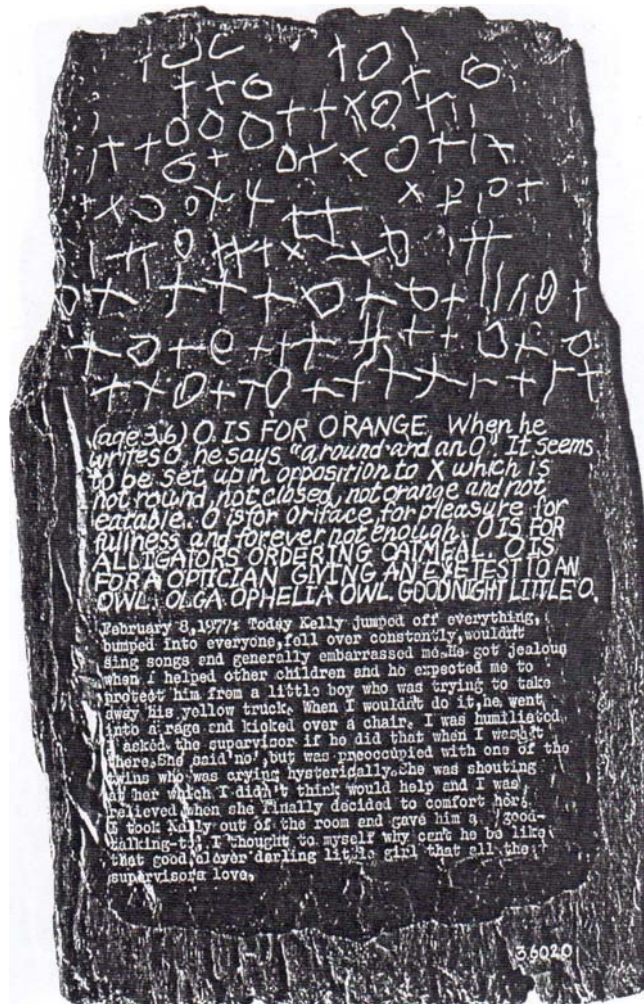 (age 3.6) O IS FOR ORANGE. When he
writes O, he says "a round and an O." It seems
to be set up in opposition to X which is
not round, not closed, not orange and not
eatable. O is for Oriface for pleasure for
fullness and forever not enough. O IS FOR
ALLIGATORS ORDERING OATMEAL. O IS
FOR A OPTICIAN GIVING AN EYE TEST TO AN
OWL. OLGA OPHELIA OWL. GOODNIGHT LITTLE O.
February 8,1977: Today Kelly jumped off everything,
bumped into everyone, fell over constantly, wouldn't
sing songs and generally embarrassed me. He got jealous
when I helped other children and he expected me to
protect him from a little boy who was trying to take
away his yellow truck. When I wouldn't do it, he went
into a rage and kicked over a chair. I was humiliated.
I asked the supervisor if he did that when I wasn't
there. She said 'no', but was preoccupied with one of the
twins who was crying hysterically. She was shouting
at her which I didn't think would help and I was
relieved when she finally decided to comfort her.
I took Kelly out of the room and gave him a 'good-
talking-to'. I thought to myself why can't he be like
that good, clever darling little girl that all the
supervisors love.
3.6020